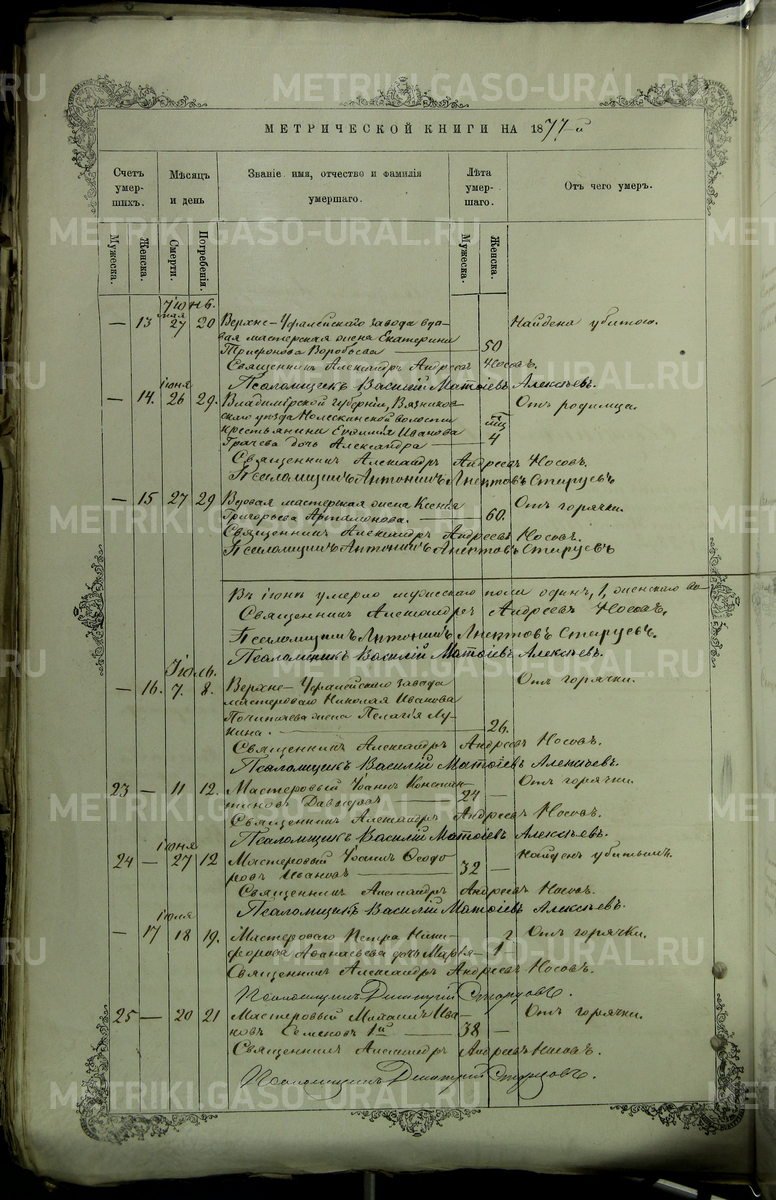 МЕТРИЧЕСКОЙ КНИГИ НА 1877-й
Счетъ умер-шихъ.
Мѣсяцъ и день
Званіе имя, отчество и фамилія умершаго.
Лѣта умер-шаго.
Отъ чего умеръ.
Мужеска. Женска. Смерти. Погребенія. Мужеска. Женска.
Іюнь.
мая
— 13 27 20 Верхне-Уфалейскаго завода вдо- Найдена убитою.
вая мастерская жена Екатерина
Трифонова Воробьева — 50
Священникъ Александръ Андреевъ Носовъ.
Псаломщикъ Василій Матѳіевъ Алексѣевъ.
іюня
— 14. 26 29. Владимірской губерніи, Вязников- Отъ родимца.
скаго уѣзда волости
крестьянина Евдокима Иванова мц
Грачева дочь Александра — 4
Священникъ Александръ Андреевъ Носовъ.
Псаломщикъ Антонинъ Старцевъ
— 15 27 29 Вдовая мастерская жена Ксенія Отъ горячки.
Григорьева Артамонова. — 60.
Священникъ Александръ Андреевъ Носовъ.
Псаломщикъ Антонинъ Старцевъ
Въ іюнѣ умерло мужескаго пола одинъ, 1, женскаго
Священникъ Александръ Андреевъ Носовъ,
Псаломщикъ Антонинъ Старцевъ.
Псаломщикъ Василій Матѳіевъ Алексѣевъ.
Іюль.
— 16. 7. 8. Верхне-Уфалейскаго завода Отъ горячки.
мастероваго Николая Иванова
жена Пелагія Лу-
кина. — 26.
Священникъ Александръ Андреевъ Носовъ.
Псаломщикъ Василій Матѳіевъ Алексѣевъ.
23 — 11 12. Мастеровый Іоаннъ Констан- Отъ горячки.
тиновъ Давыдовъ — 24 —
Священникъ Александръ Андреевъ Носовъ.
Псаломщикъ Василій Матѳіевъ Алексѣевъ.
іюня
24 — 27 12 Мастеровый Іоаннъ Ѳеодо- Найденъ убитымъ.
ровъ Ивановъ — 32 —
Священникъ Александръ Андреевъ Носовъ.
Псаломщикъ Василій Матѳіевъ Алексѣевъ.
іюля
— 17 18 19. Мастероваго Петра Ники- г Отъ горячки.
форова Аѳанасьева дочь Марія — 1
Священникъ Александръ Андреевъ Носовъ.
Псаломщикъ Димитрій Старцевъ.
25 — 20 21 Мастеровый Михаилъ Ива- Отъ горячки.
новъ Семеновъ 1й — 38 —
Священникъ Александръ Андреевъ Носовъ.
Псаломщикъ Димитрій Старцевъ.
METRIKI.GASO-URAL.RU